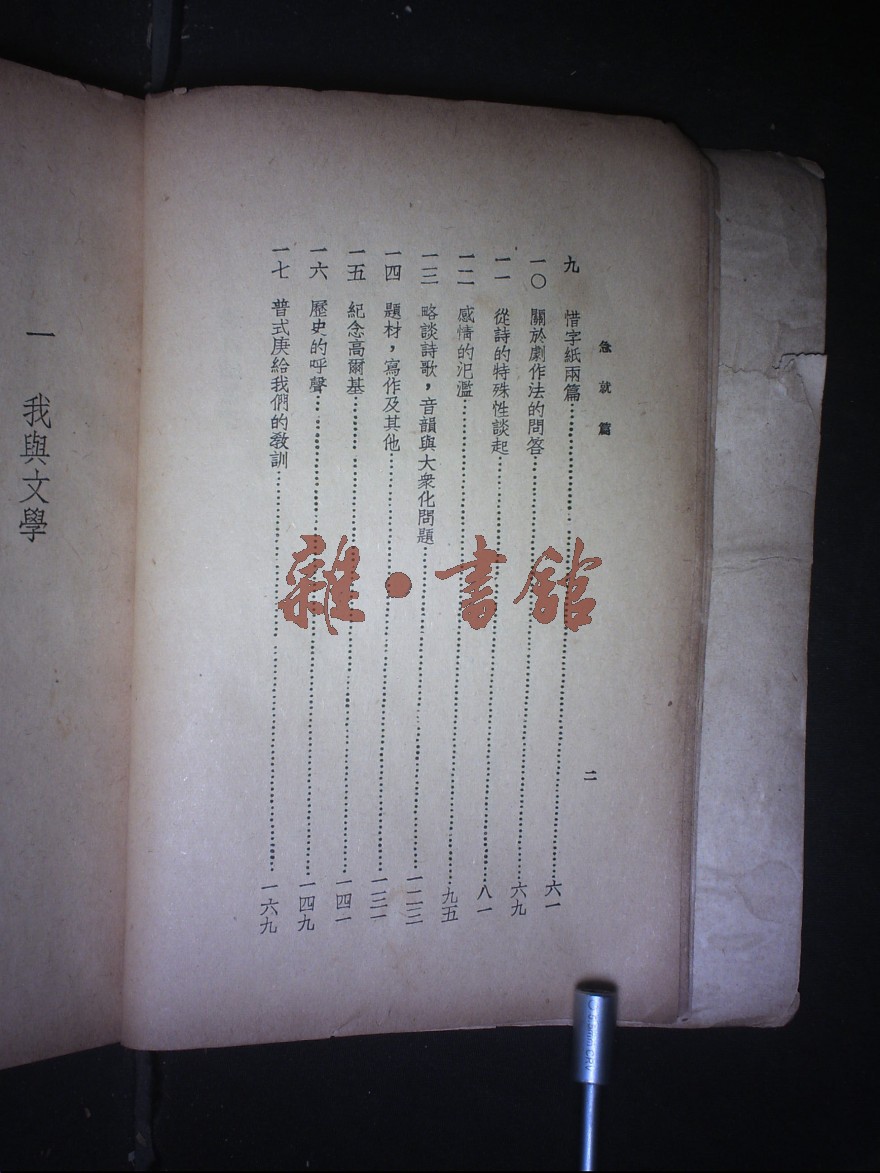 急就篇
二
九 惜字紙兩篇……六一
一〇 關於劇作法的問答……六九
一一 從詩的特殊性談起……八一
一二 感情的氾濫……九五
一三 略談詩歌，音韻與大衆化問題……一二三
一四 題材，寫作及其他……一三一
一五 紀念高爾基……一四一
一六 歷史的呼聲……一四九
一七 普式庚給我們的教訓……一六九
一 我與文學
雜·書館
5.5mm CRV